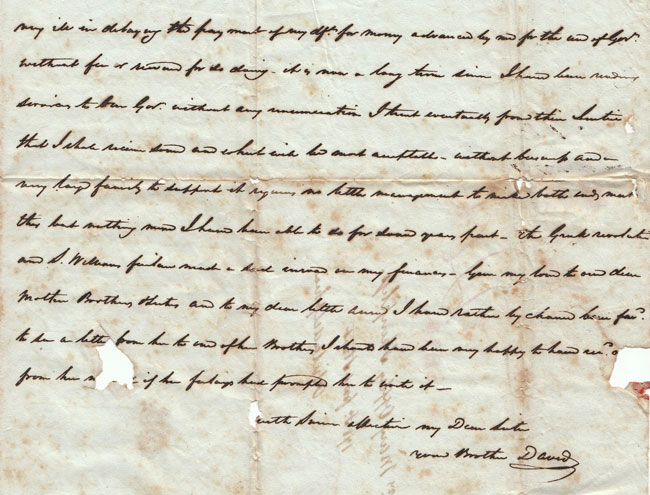 very ill in delaying the payment of my dft. for money advanced by me for the use of Gov.
without fee or reward for so doing - it is now a long time since I have been rendering
services to our Gov. without any remuneration I trust eventually from their Justice
that I shall receive some and which will be most acceptable - without and a
very large family to support it requires no little management to make both ends meet
this but nothing more I have been able to do for some years past - the Greek revolution
and S. Williams failure made a sad inroad on my finances - Give my love to our dear
Mother Brothers Sisters and to my dear little I have rather by chance been fav.
to see a letter from her to one of her Brothers I should have been very happy to have rec.
from her if her feelings had prompted her to write it -
with Sincere affection my Dear Sister
your Brother David